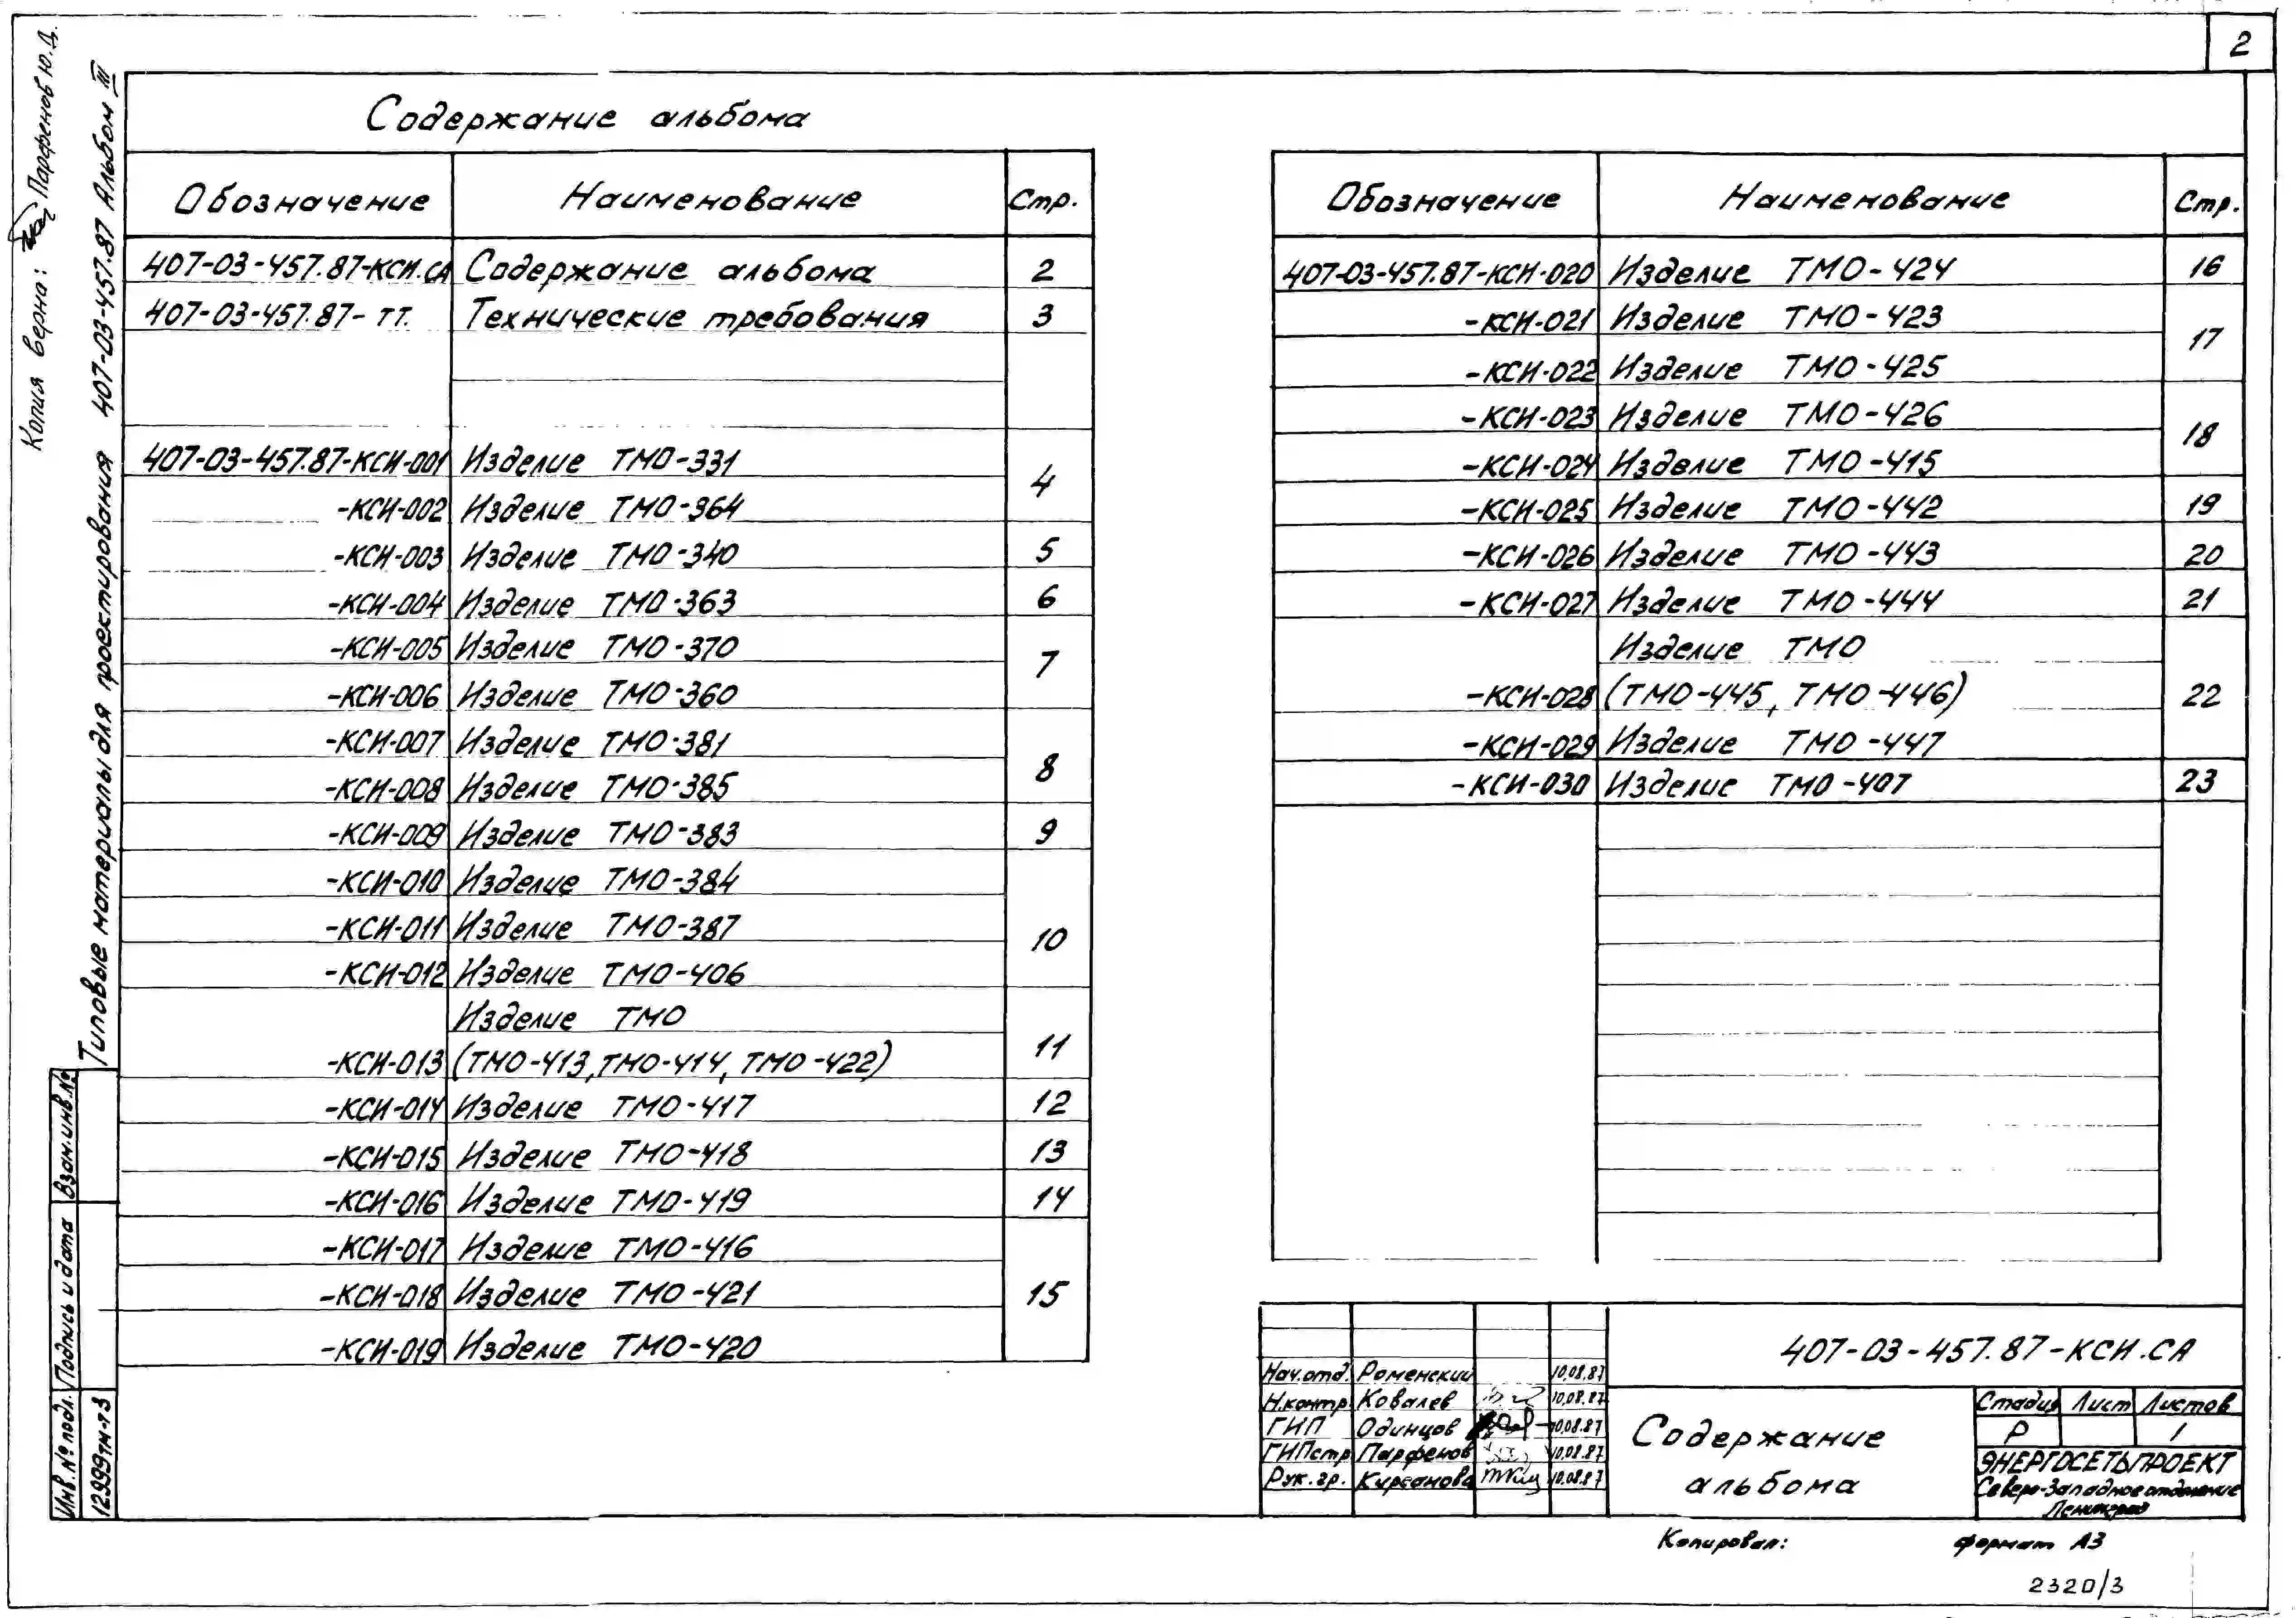 2
Копия верна: Парфенов Ю.Д.
Типовые материалы для проектирования 407-03-457.87 Альбом III
Содержание альбома
Обозначение Наименование Стр.
407-03-457.87-КСИ.СА Содержание альбома 2
407-03-457.87-ТТ. Технические требования 3
407-03-457.87-КСИ-001 Изделие ТМО-331
4
-КСИ-002 Изделие ТМО-364
-КСИ-003 Изделие ТМО-340 5
-КСИ-004 Изделие ТМО-363 6
-КСИ-005 Изделие ТМО-370
7
-КСИ-006 Изделие ТМО-360
-КСИ-007 Изделие ТМО-381
8
-КСИ-008 Изделие ТМО-385
-КСИ-009 Изделие ТМО-383 9
-КСИ-010 Изделие ТМО-384
-КСИ-011 Изделие ТМО-387
10
-КСИ-012 Изделие ТМО-406
Изделие ТМО
11
-КСИ-013 (ТМО-413, ТМО-414, ТМО-422)
-КСИ-014 Изделие ТМО-417 12
-КСИ-015 Изделие ТМО-418 13
-КСИ-016 Изделие ТМО-419 14
-КСИ-017 Изделие ТМО-416
-КСИ-018 Изделие ТМО-421 15
-КСИ-019 Изделие ТМО-420
Обозначение Наименование Стр.
407-03-457.87-КСИ-020 Изделие ТМО-424 16
-КСИ-021 Изделие ТМО-423
17
-КСИ-022 Изделие ТМО-425
-КСИ-023 Изделие ТМО-426
18
-КСИ-024 Изделие ТМО-415
-КСИ-025 Изделие ТМО-442 19
-КСИ-026 Изделие ТМО-443 20
-КСИ-027 Изделие ТМО-444 21
Изделие ТМО
-КСИ-028 (ТМО-445, ТМО-446) 22
-КСИ-029 Изделие ТМО-447
-КСИ-030 Изделие ТМО-407 23
Взам.инв.№
Подпись и дата
Инв.№ подл.
12999тм-т3
407-03-457.87-КСИ.СА
Нач.отд. Роменский 10.08.87
Н.контр. Ковалев 10.08.87
ГИП Одинцов 10.08.87
ГИПстр Парфенов 10.08.87
Рук.гр. Кирсанова 10.08.87
Содержание
альбома
Стадия Лист Листов
Р 1
ЭНЕРГОСЕТЬПРОЕКТ
Северо-Западное отделение
Ленинград
Копировал: формат А3
2320/3